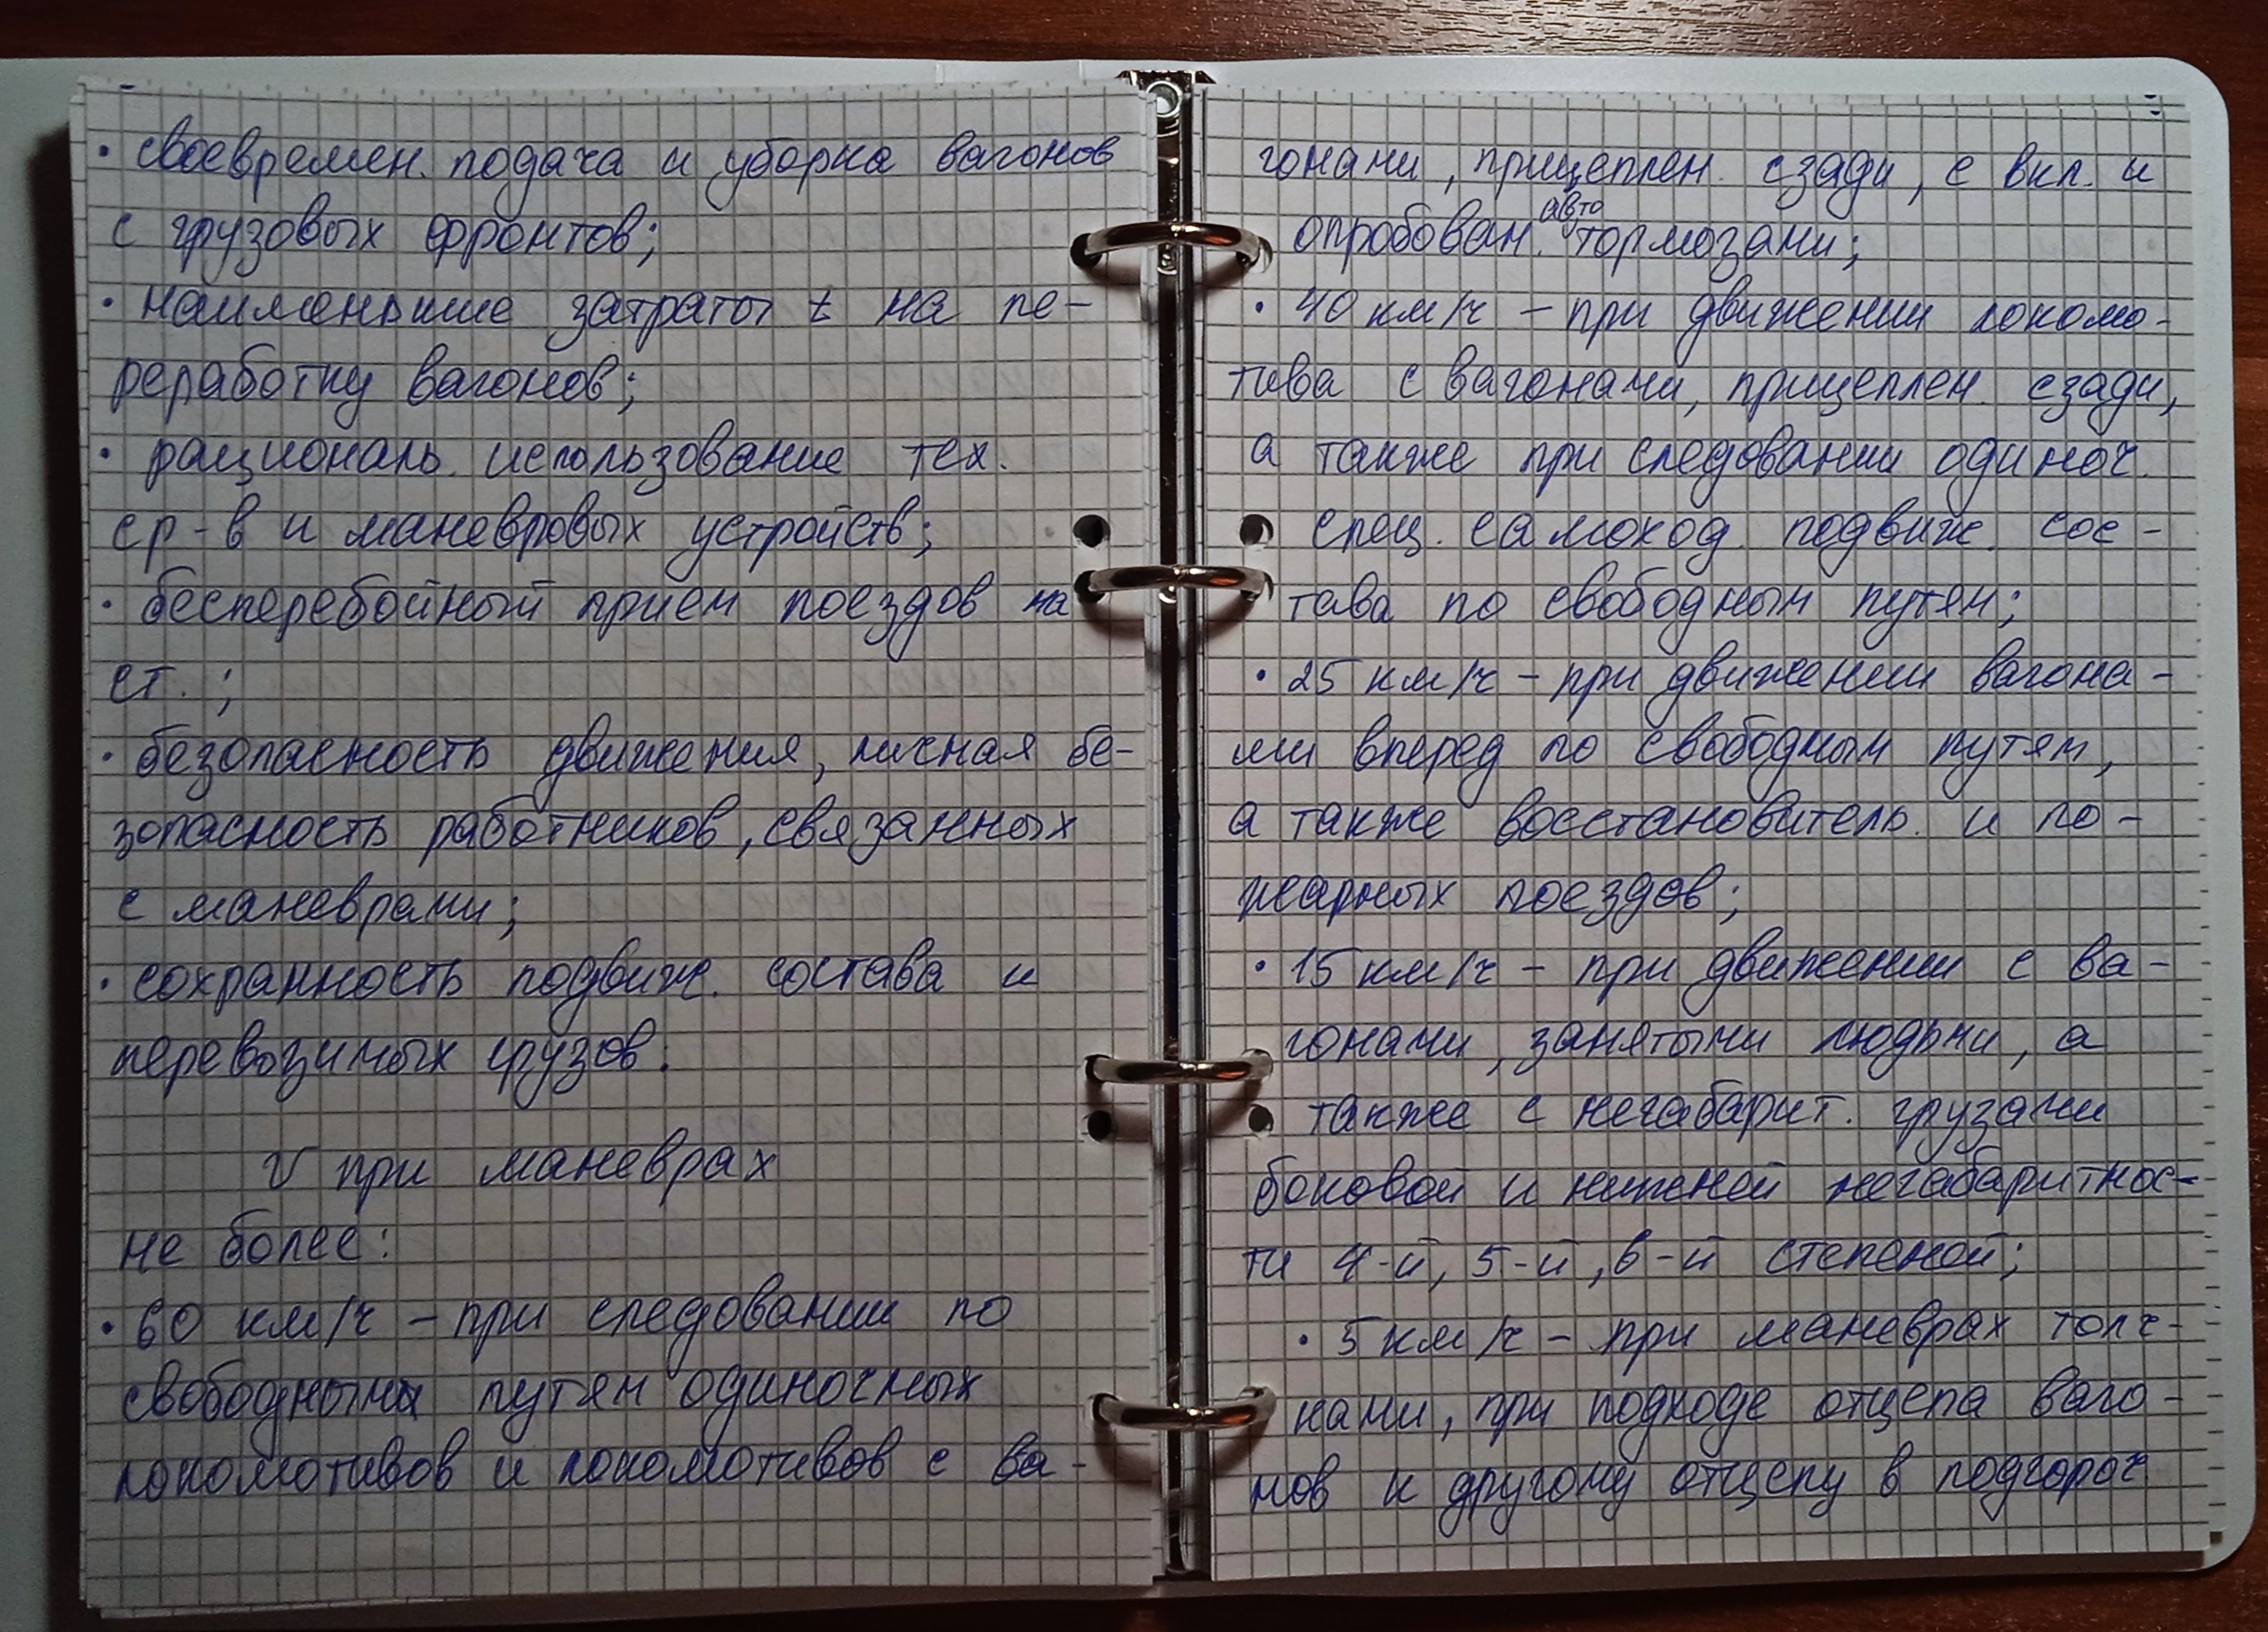 • своевремен. подача и уборка вагонов
с грузовых фронтов;
• наименьшие затраты t на пе-
реработку вагонов;
• рациональ. использование тех.
ср-в и маневровых устройств;
• бесперебойный прием поездов на
ст.;
• безопасность движения, личная бе-
зопасность работников, связанных
с маневрами;
• сохранность подвиж. состава и
перевозимых грузов.
V при маневрах
не более:
• 60 км/ч – при следовании по
свободным путям одиночных
локомотивов и локомотивов с ва-
гонами, прицеплен. сзади, с вкл. и
опробован. автотормозами;
• 40 км/ч – при движении локомо-
тива с вагонами, прицеплен. сзади,
а также при следовании одиноч.
спец. самоход. подвиж. сос-
тава по свободным путям;
• 25 км/ч – при движении вагона-
ми вперед по свободным путям,
а также восстановитель. и по-
жарных поездов;
• 15 км/ч – при движении с ва-
гонами, занятыми людьми, а
также с негабарит. грузами
боковой и нижней негабаритнос-
ти 4-й, 5-й, 6-й степеной;
• 5 км/ч – при маневрах толч-
ками, при подходе отцепа ваго-
нов к другому отцепу в подгороч